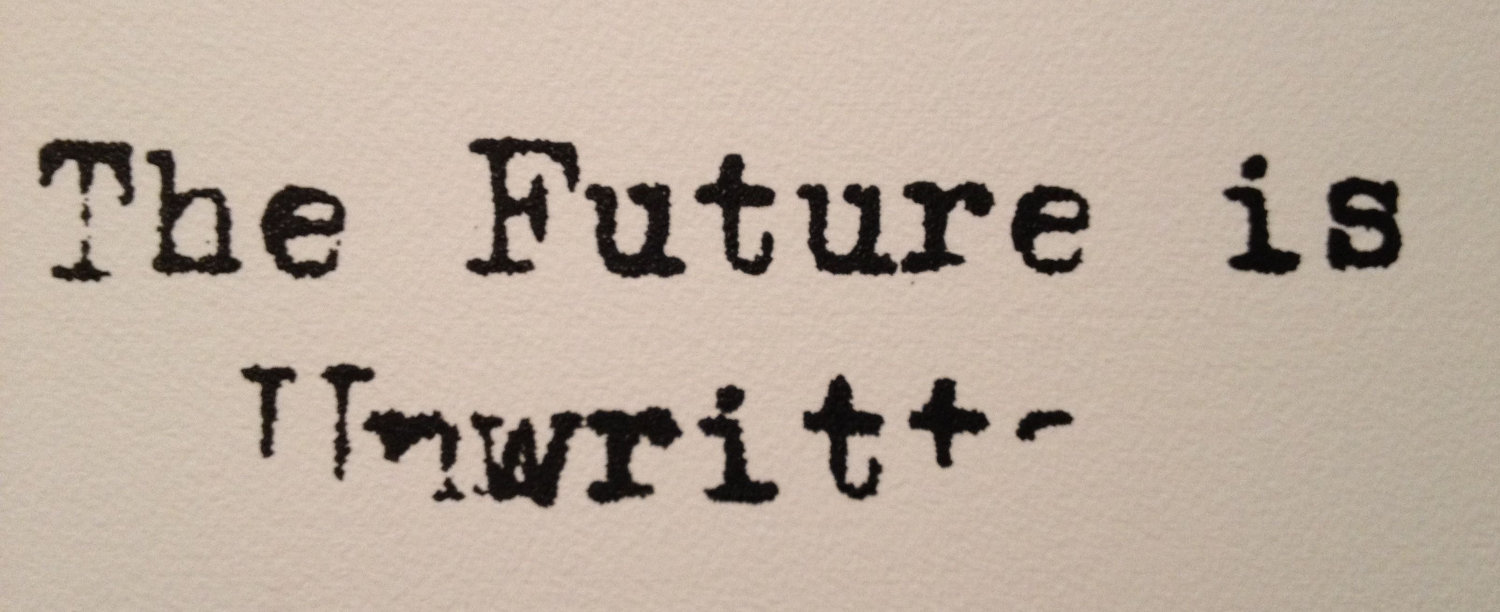 The Future is
Unwritte